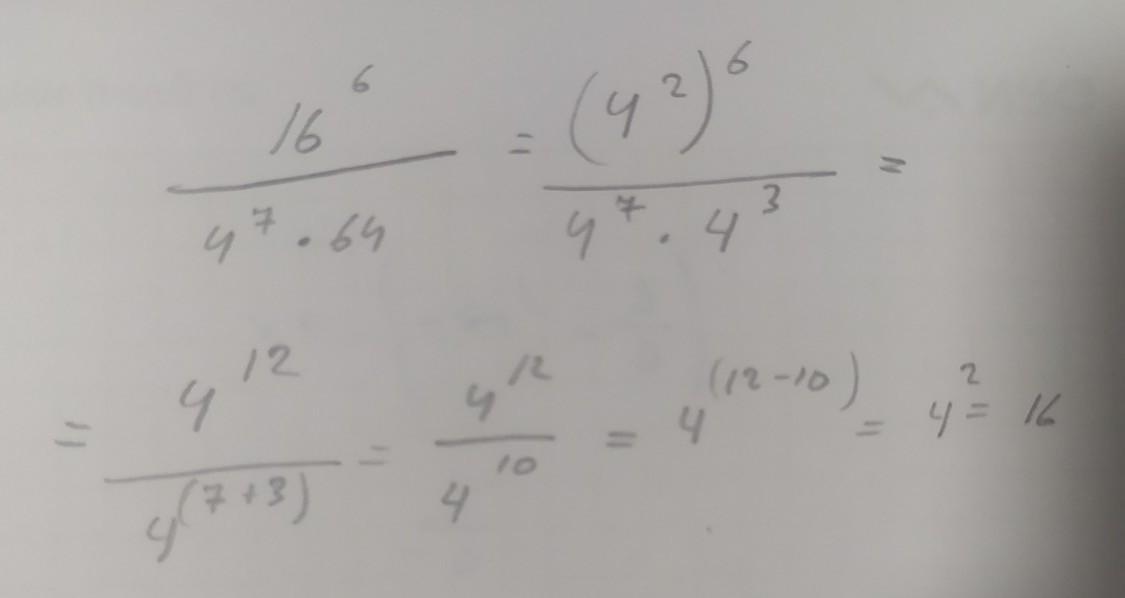 16^6 / 4^7 · 64 = (4^2)^6 / 4^7 · 4^3 =
= 4^12 / 4^(7+3) = 4^12 / 4^10 = 4^(12-10) = 4^2 = 16